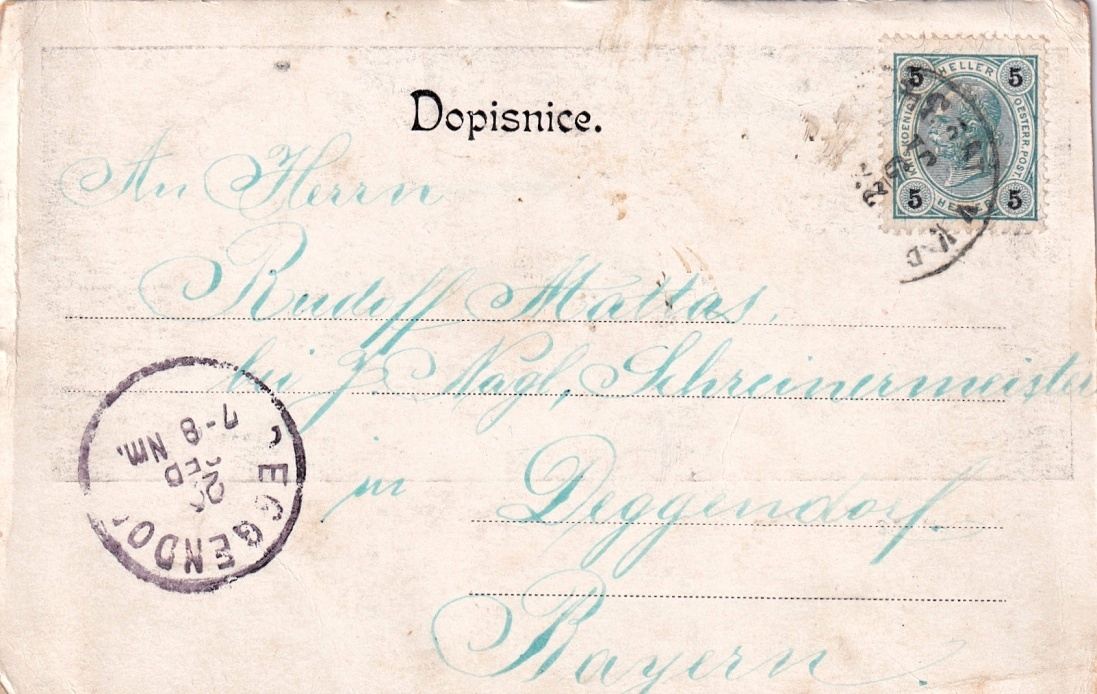 Dopisnice.
5 HELLER 5
KAIS. KOENIGL. OESTERR. POST
5 HELLER 5
An Herrn
Rudolf Mattas,
bei J. Nagl, Schreinermeister
in Deggendorf.
Bayern.
DEGGENDO
7-8 NM.